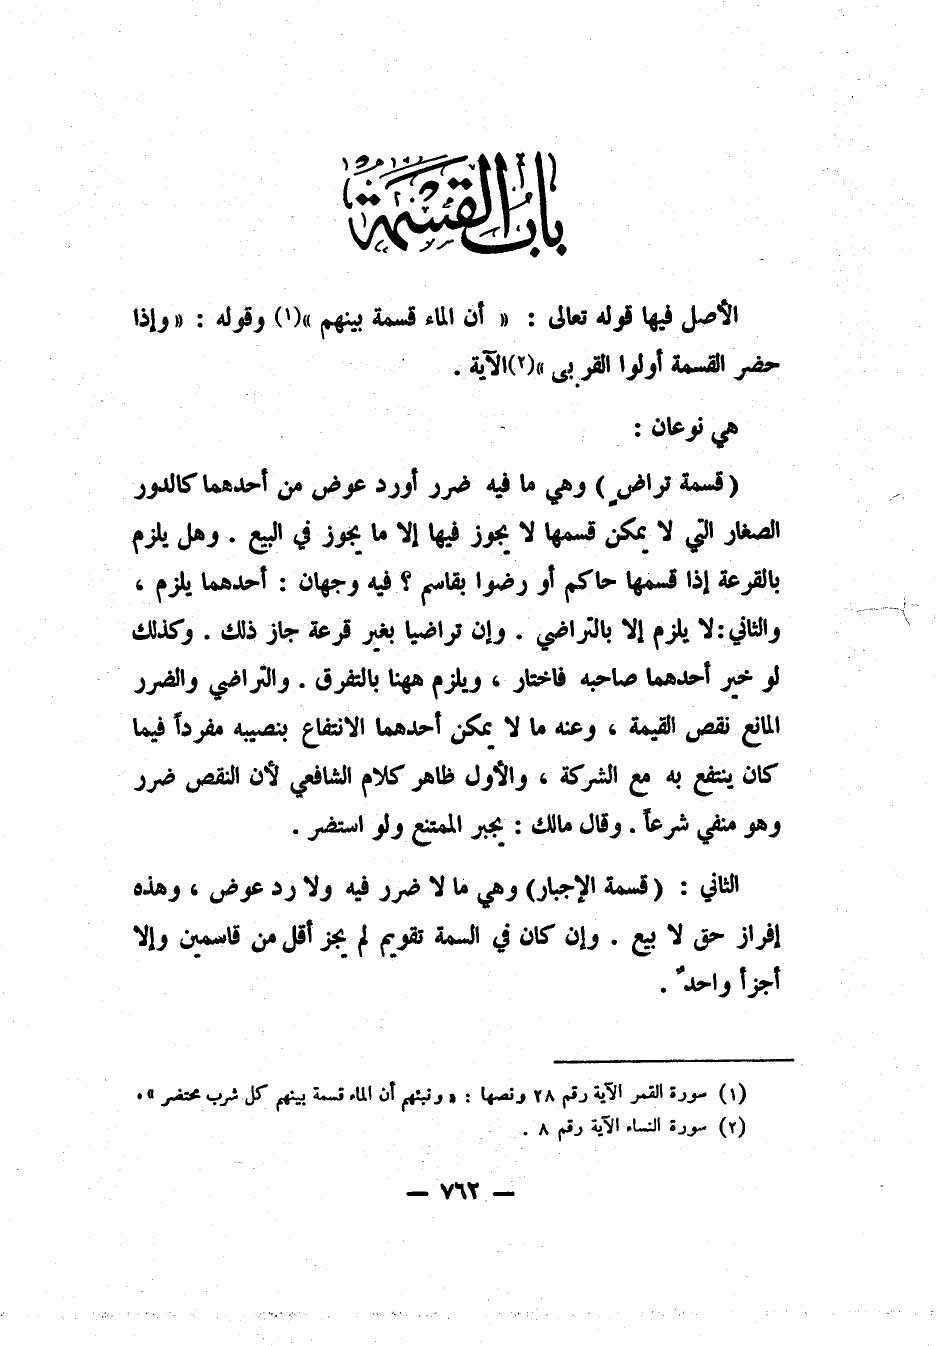 باب القسمة
الأصل فيها قوله تعالى : « أن الماء قسمة بينهم »(١) وقوله : « وإذا
حضر القسمة أولوا القربى »(٢)الآية .
هي نوعان :
( قسمة تراضٍ ) وهي ما فيه ضرر أورد عوض من أحدهما كالدور
الصغار التي لا يمكن قسمها لا يجوز فيها إلا ما يجوز في البيع . وهل يلزم
بالقرعة إذا قسمها حاكم أو رضوا بقاسم ؟ فيه وجهان : أحدهما يلزم ،
والثاني : لا يلزم إلا بالتراضي . وإن تراضيا بغير قرعة جاز ذلك . وكذلك
لو خير أحدهما صاحبه فاختار ، ويلزم ههنا بالتفرق . والتراضي والضرر
المانع نقص القيمة ، وعنه ما لا يمكن أحدهما الانتفاع بنصيبه مفرداً فيما
كان ينتفع به مع الشركة ، والأول ظاهر كلام الشافعي لأن النقص ضرر
وهو منفي شرعاً . وقال مالك : يجبر الممتنع ولو استضر .
الثاني : ( قسمة الإجبار ) وهي ما لا ضرر فيه ولا رد عوض ، وهذه
إفراز حق لا بيع . وإن كان في السمة تقويم لم يجز أقل من قاسمين وإلا
أجزأ واحدٌ .
(١) سورة القمر الآية رقم ٢٨ ونصها : « ونبئهم أن الماء قسمة بينهم كل شرب محتضر » .
(٢) سورة النساء الآية رقم ٨ .
— ٧٦٢ —